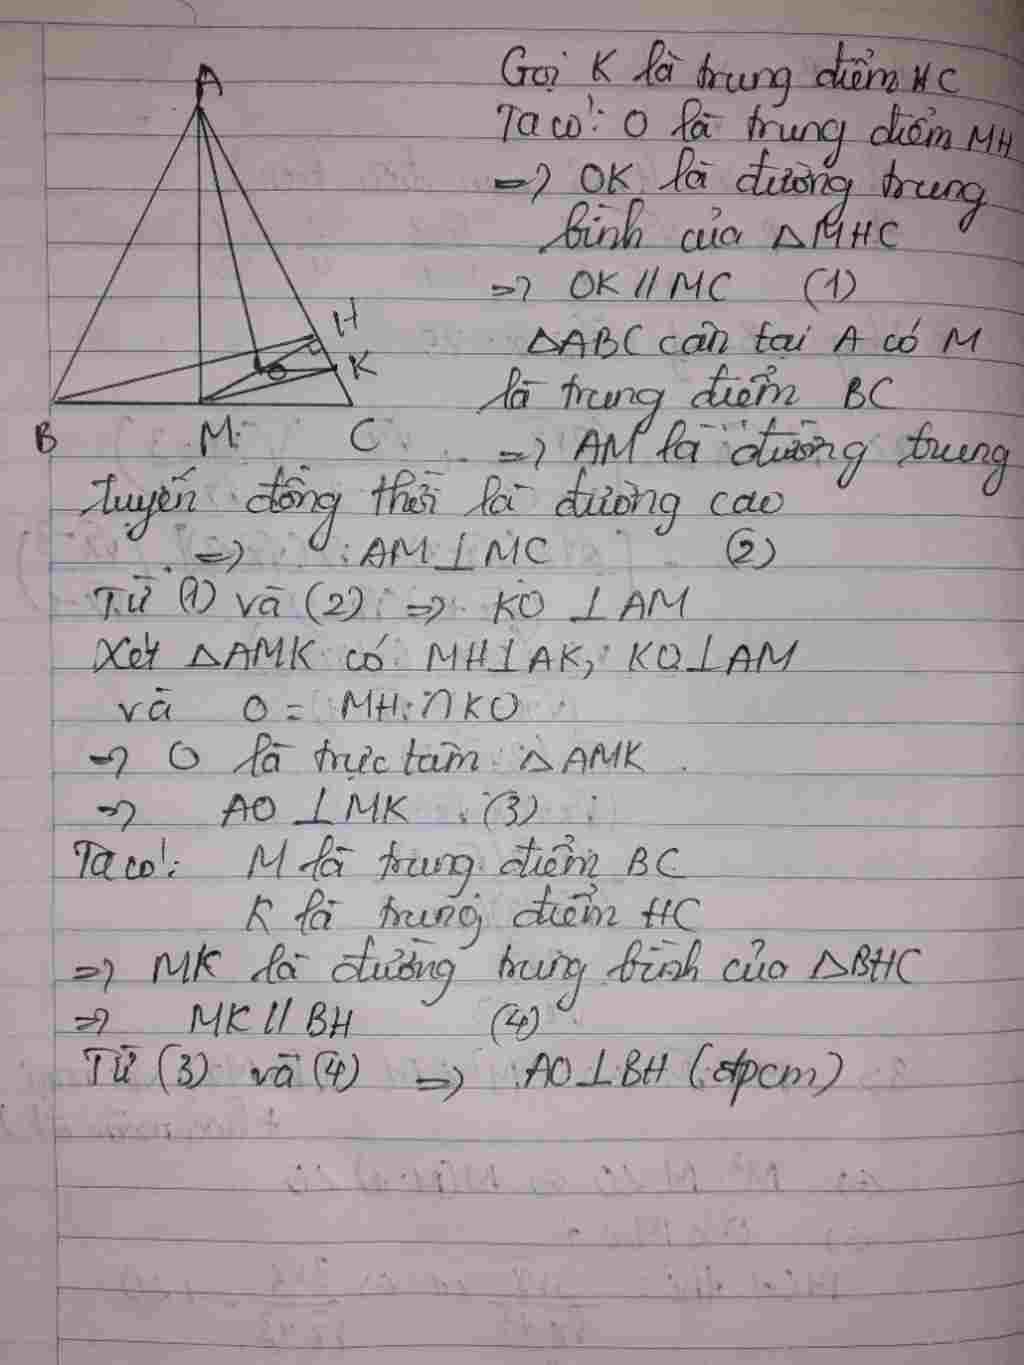 Gọi K là trung điểm HC
Ta có: O là trung điểm MH
=> OK là đường trung
bình của △MHC
=> OK // MC (1)
△ABC cân tại A có M
là trung điểm BC
=> AM là đường trung
tuyến đồng thời là đường cao
=> AM ⊥ MC (2)
Từ (1) và (2) => KO ⊥ AM
Xét △AMK có MH ⊥ AK, KO ⊥ AM
và O = MH ∩ KO
=> O là trực tâm △AMK
=> AO ⊥ MK (3)
Ta có: M là trung điểm BC
K là trung điểm HC
=> MK là đường trung bình của △BHC
=> MK // BH (4)
Từ (3) và (4) => AO ⊥ BH (đpcm)
A
H
O
K
B
M
C